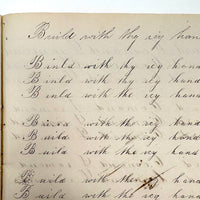 Build with thy icy hand
Binld with thy icy hand
Binld with thy icy hand
Binld with the icy hand
Build with the icy hand
Build with the icy hand
Build with the icy hand
Build with the icy
Build with the icy hand